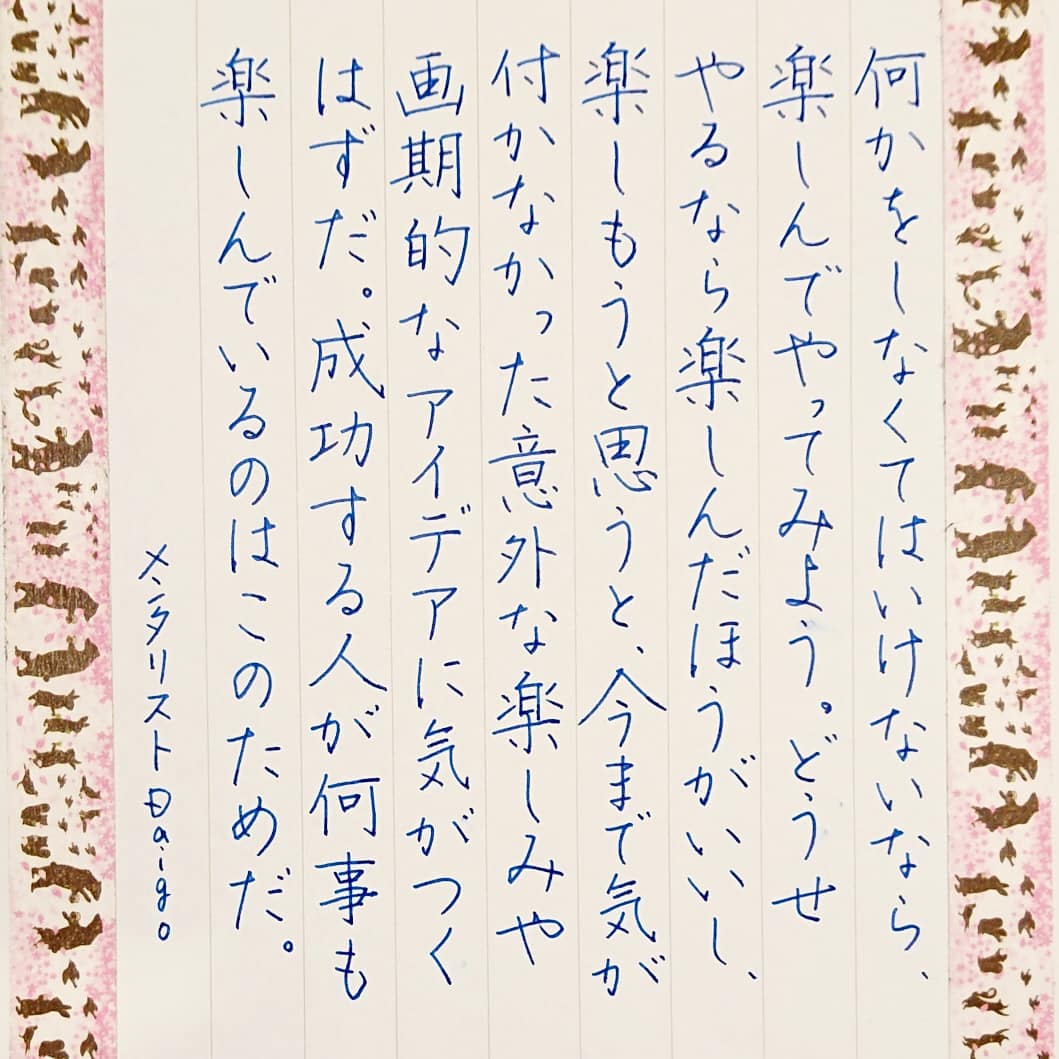 何かをしなくてはいけないなら、
楽しんでやってみよう。どうせ
やるなら楽しんだほうがいいし、
楽しもうと思うと、今まで気が
付かなかった意外な楽しみや
画期的なアイデアに気がつく
はずだ。成功する人が何事も
楽しんでいるのはこのためだ。
メンタリストDaigo